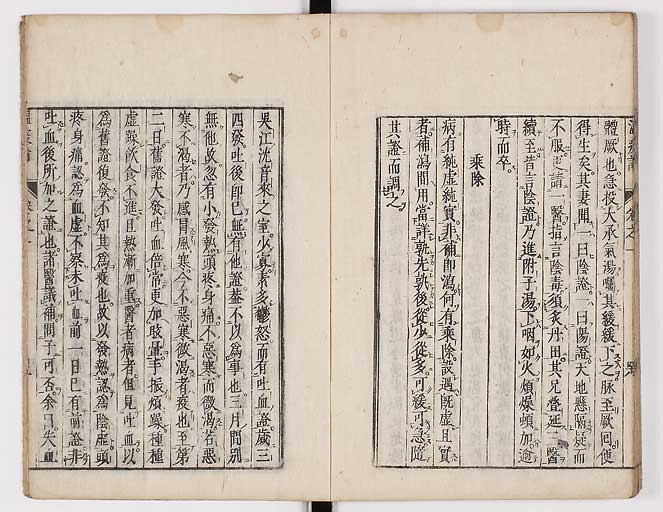 體厥也急投大承氣湯囑其緩緩下之脉至厥回便
得生矣其妻聞一曰陰證一曰陽證天地懸隔疑而
不服更請一醫指言陰毒須灸丹田其兄疊延三醫
續至皆言陰證乃進附子湯下咽如火煩燥頓加逾
時而卒
乘除
病有純虛純實非補即瀉何有乘除設遇既虛且實
者補瀉間用當詳孰先孰後從少從多可緩可急隨
其證而調之
吳江沈音來之室少寡素多鬱怒而有吐血證歲三
四發吐後即已無有他證蓋不以為事也三月間別
無他故忽有小發熱頭疼身痛不惡寒而微渴若惡
寒不渴者乃感冒風寒今不惡寒微渴者疫也至第
二日舊證大發吐血倍常更加眩暈手振煩躁種種
虛躁飲食不進且熱漸加重醫者病者但見吐血以
為舊證復發不知其為疫也故以發熱認為陰虛頭
疼身痛認為血虛不察未吐血前一日已有前證非
吐血後所加之證也諸醫議補問予可否余曰失血